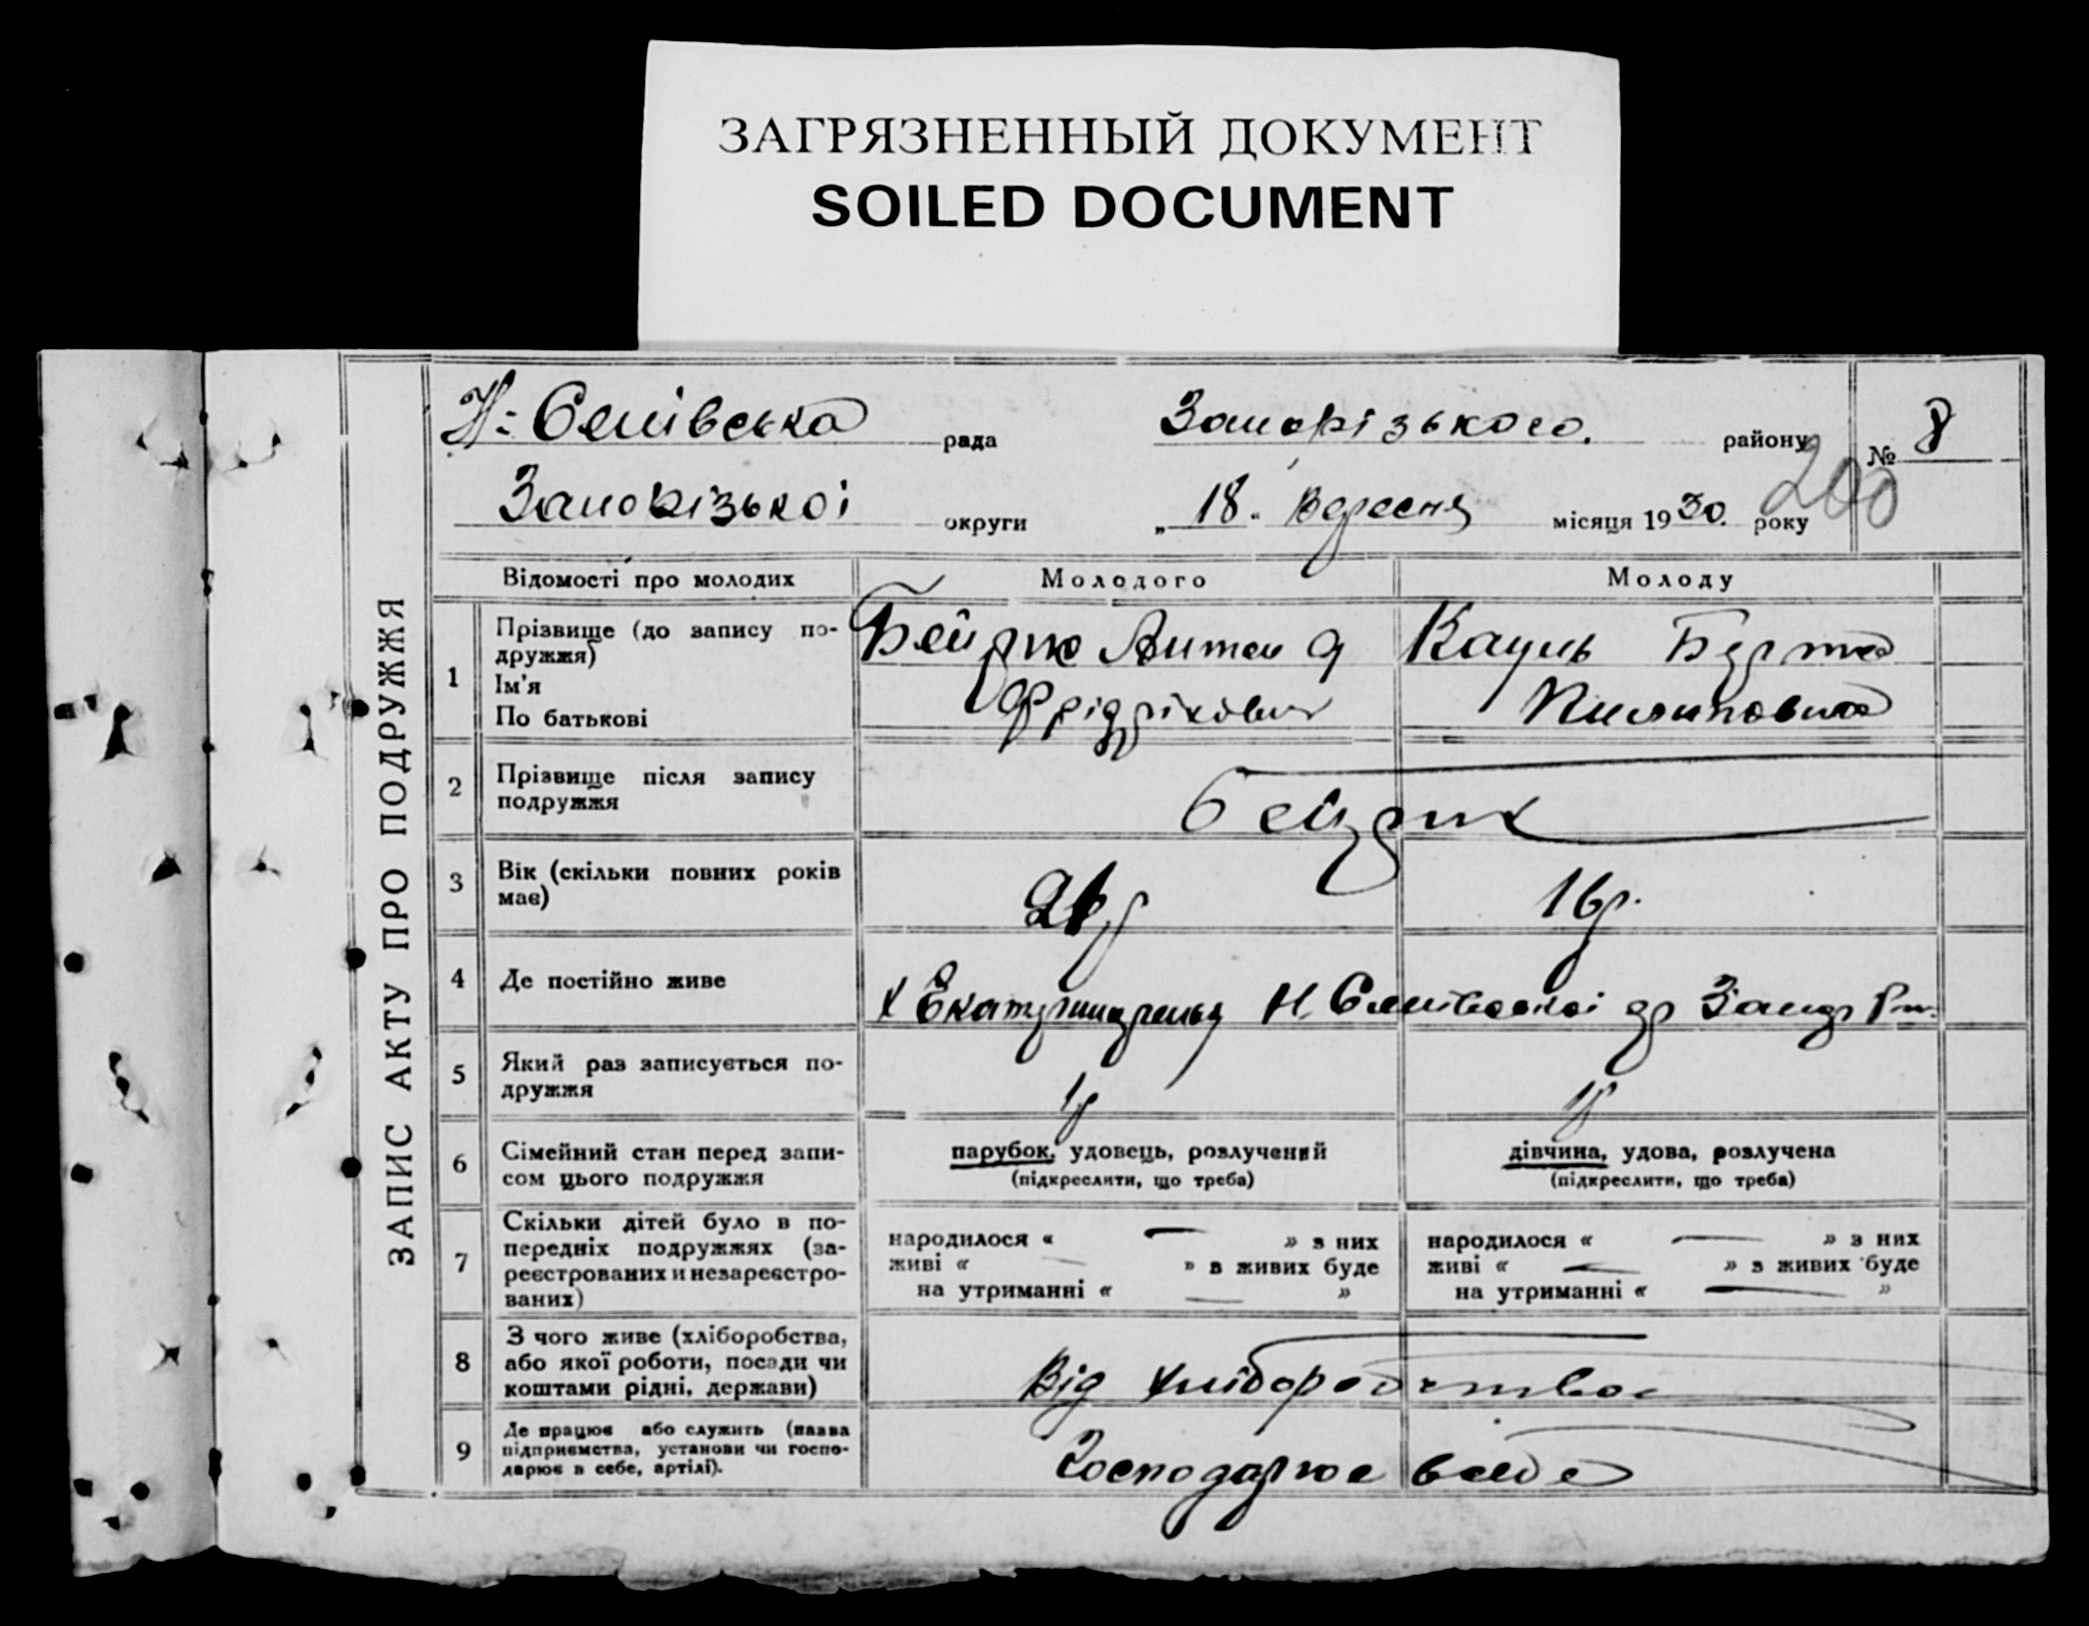 ЗАГРЯЗНЕННЫЙ ДОКУМЕНТ
SOILED DOCUMENT
ЗАПИС АКТУ ПРО ПОДРУЖЖЯ
рада Запорізького району № 8
200
Запорізької округи „ 18 " вересня місяця 1930 року
Відомості про молодих Молодого Молоду
1 Прізвище (до запису по-
дружжя)
Ім'я
По батькові
Фрідріхович
Пилиповна
2 Прізвище після запису
подружжя
Бейдрих
3 Вік (скільки повних років
має)
16 р.
4 Де постійно живе
5 Який раз записується по-
дружжя
1 р 1 р
6 Сімейний стан перед запи-
сом цього подружжя
парубок, удовець, розлучений
(підкреслити, що треба)
дівчина, удова, розлучена
(підкреслити, що треба)
7 Скільки дітей було в по-
передніх подружжях (за-
реєстрованих и незареєстро-
ваних)
народилося « — » з них
живі « — » з живих буде
на утриманні « — »
народилося « — » з них
живі « — » з живих буде
на утриманні « — »
8 З чого живе (хліборобства,
або якої роботи, посади чи
коштами рідні, держави)
Від хліборобства
9 Де працює або служить (назва
підприємства, установи чи госпо-
дарює в себе, артілі).
Господарює в себе